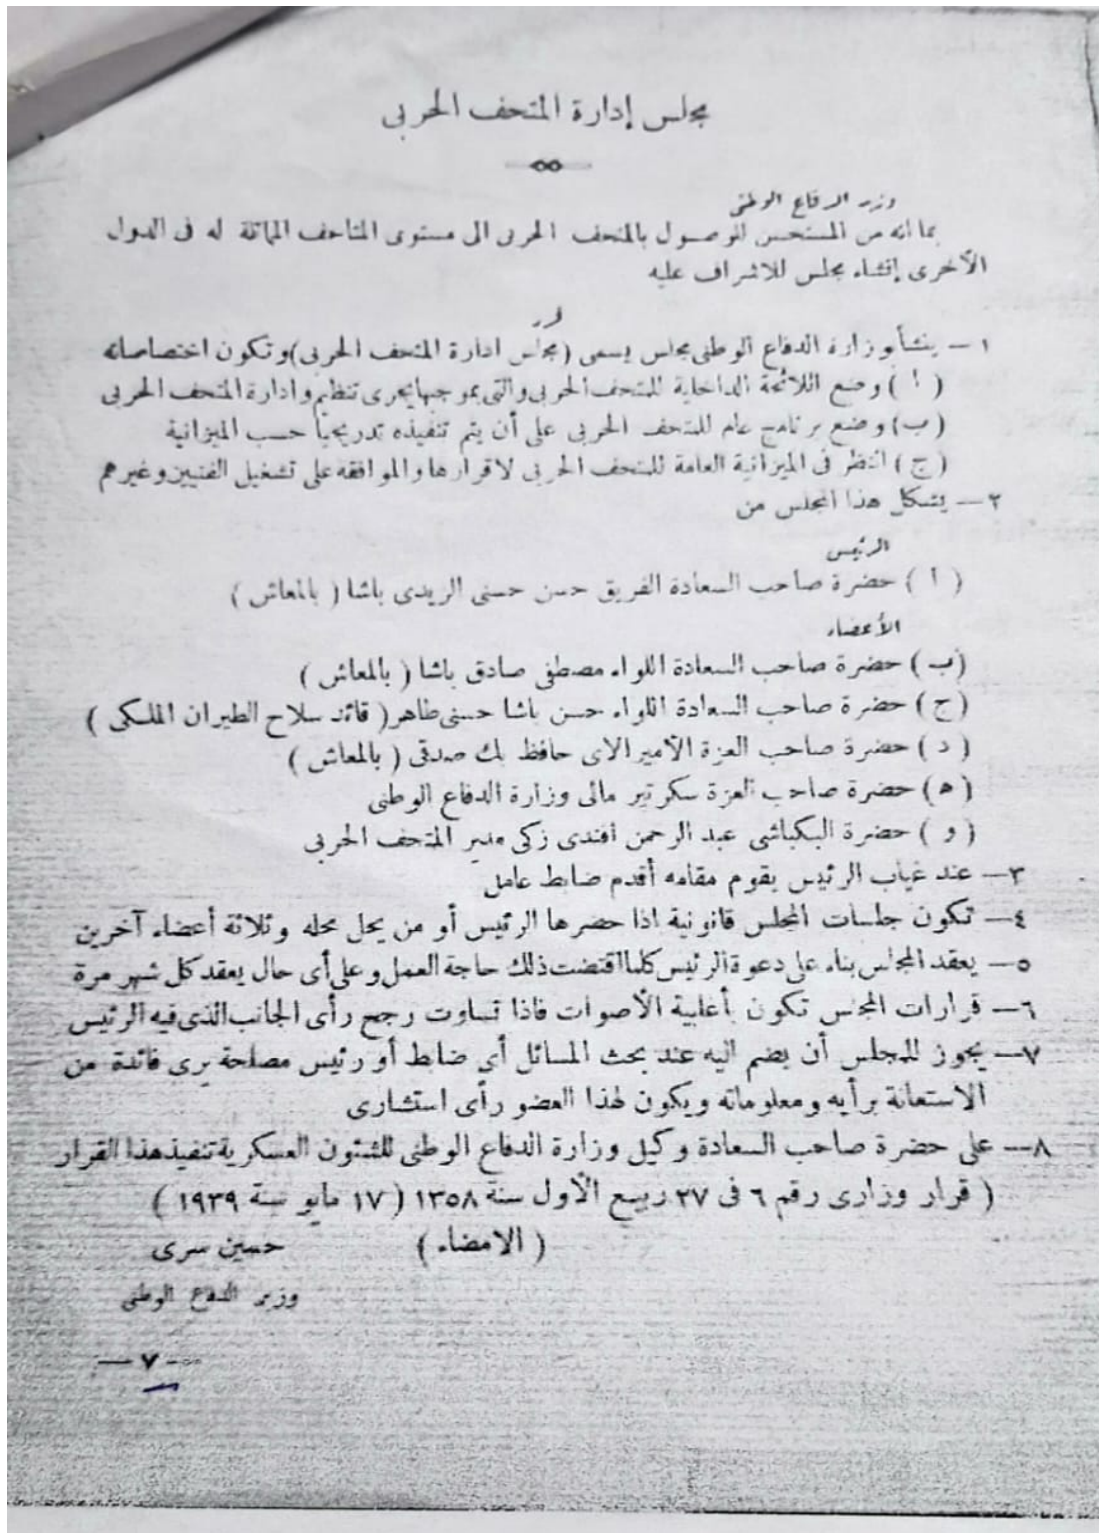 مجلس إدارة المتحف الحربى
وزير الدفاع الوطنى
بما انه من المستحسن الوصول بالمتحف الحربى الى مستوى المتاحف المماثلة له فى الدول
الأخرى إنشاء مجلس للاشراف عليه
قرر
١ — ينشأ بوزارة الدفاع الوطنى مجلس يسمى (مجلس ادارة المتحف الحربى) وتكون اختصاصاته
( ا ) وضع اللائحة الداخلية للمتحف الحربى والتى بموجبها يجرى تنظيم وادارة المتحف الحربى
(ب) وضع برنامج عام للمتحف الحربى على أن يتم تنفيذه تدريجياً حسب الميزانية
(ج) النظر فى الميزانية العامة للمتحف الحربى لاقرارها والموافقة على تشغيل الفنيين وغيرهم
٢ — يتشكل هذا المجلس من
الرئيس
( ا ) حضرة صاحب السعادة الفريق حسن حسنى الزيدى باشا ( بالمعاش )
الأعضاء
(ب) حضرة صاحب السعادة اللواء مصطفى صادق باشا ( بالمعاش )
(ج) حضرة صاحب السعادة اللواء حسن باشا حسنى طاهر ( قائد سلاح الطيران الملكى )
( د ) حضرة صاحب العزة الأميرالاى حافظ بك صدقى ( بالمعاش )
(ه) حضرة صاحب العزة سكرتير مالى وزارة الدفاع الوطنى
( و ) حضرة البكباشى عبد الرحمن افندى زكى مدير المتحف الحربى
٣ — عند غياب الرئيس يقوم مقامه أقدم ضابط عامل
٤ — تكون جلسات المجلس قانونية اذا حضرها الرئيس أو من يحل محله وثلاثة أعضاء آخرين
٥ — يعقد المجلس بناء على دعوة الرئيس كلما اقتضت ذلك حاجة العمل وعلى أى حال يعقد كل شهر مرة
٦ — قرارات المجلس تكون بأغلبية الأصوات فاذا تساوت رجح رأى الجانب الذى فيه الرئيس
٧ — يجوز للمجلس أن يضم اليه عند بحث المسائل أى ضابط أو رئيس مصلحة يرى فائدة من
الاستعانة برأيه ومعلوماته ويكون لهذا العضو رأى استشارى
٨ — على حضرة صاحب السعادة وكيل وزارة الدفاع الوطنى للشئون العسكرية تنفيذ هذا القرار
( قرار وزارى رقم ٦ فى ٢٧ ربيع الأول سنة ١٣٥٨ ( ١٧ مايو سنة ١٩٣٩ )
( الامضاء ) حسين سرى
وزير الدفاع الوطنى
— ٧ —